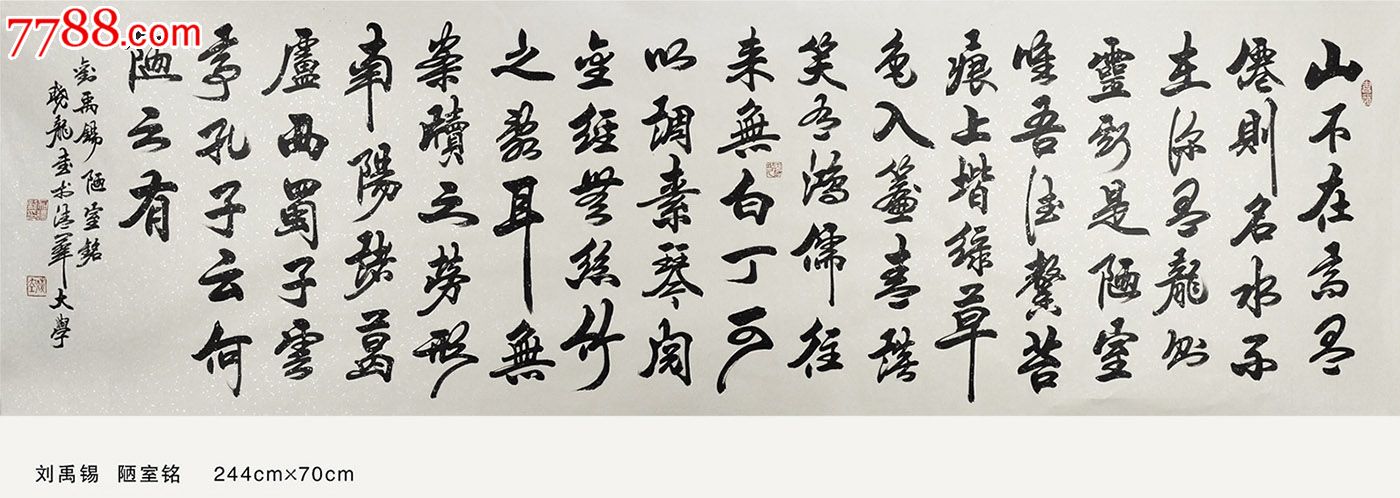 7788.com
山不在高有
僊則名水不
在深有龍則
靈斯是陋室
唯吾德馨苔
痕上堦綠草
色入簾青談
笑有鴻儒往
来無白丁可
以調素琴閱
金經無絲竹
之亂耳無
案牘之勞形
南陽諸葛
廬西蜀子雲
亭孔子云何
陋之有
劉禹錫陋室銘
龍書於清華大學
刘禹锡 陋室铭 244cm×70cm